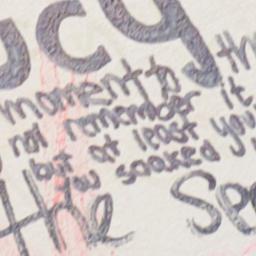 ocy
moment to
not remember it
but at least you
you soaked
the Spe